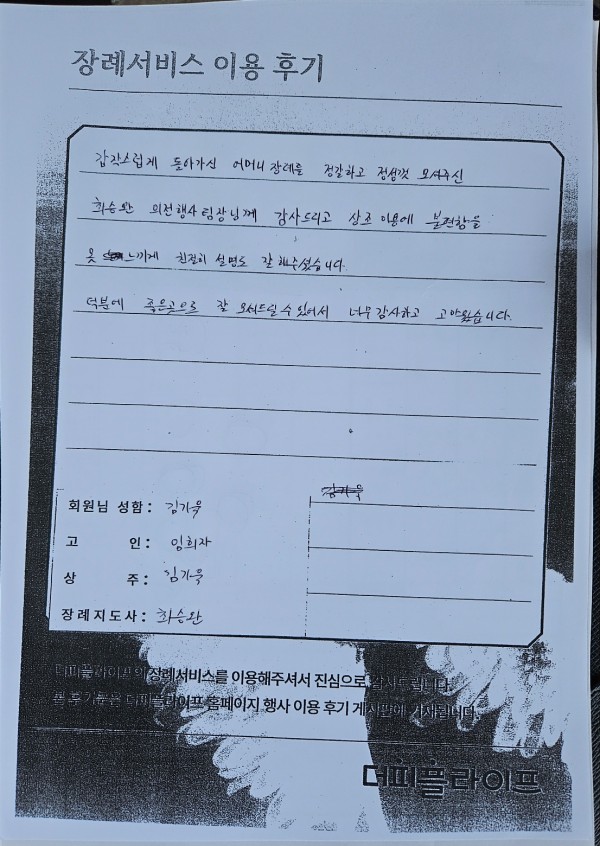 장례서비스 이용 후기
갑작스럽게 돌아가신 어머니 장례를 정갈하고 정성껏 모셔주신
최승완 의전행사팀장님께 감사드리고 상조 이용에 불편함을
못 느끼게 친절히 설명도 잘 해주셨습니다.
덕분에 좋은곳으로 잘 모셔드릴 수 있어서 너무 감사하고 고마웠습니다.
회원님 성함: 김기욱
고 인: 임희자
상 주: 김기욱
장례지도사: 최승완
더피플라이프의 장례서비스를 이용해주셔서 진심으로 감사드립니다.
본 후기문은 더피플라이프 홈페이지 행사 이용 후기 게시판에 게시됩니다.
더피플라이프